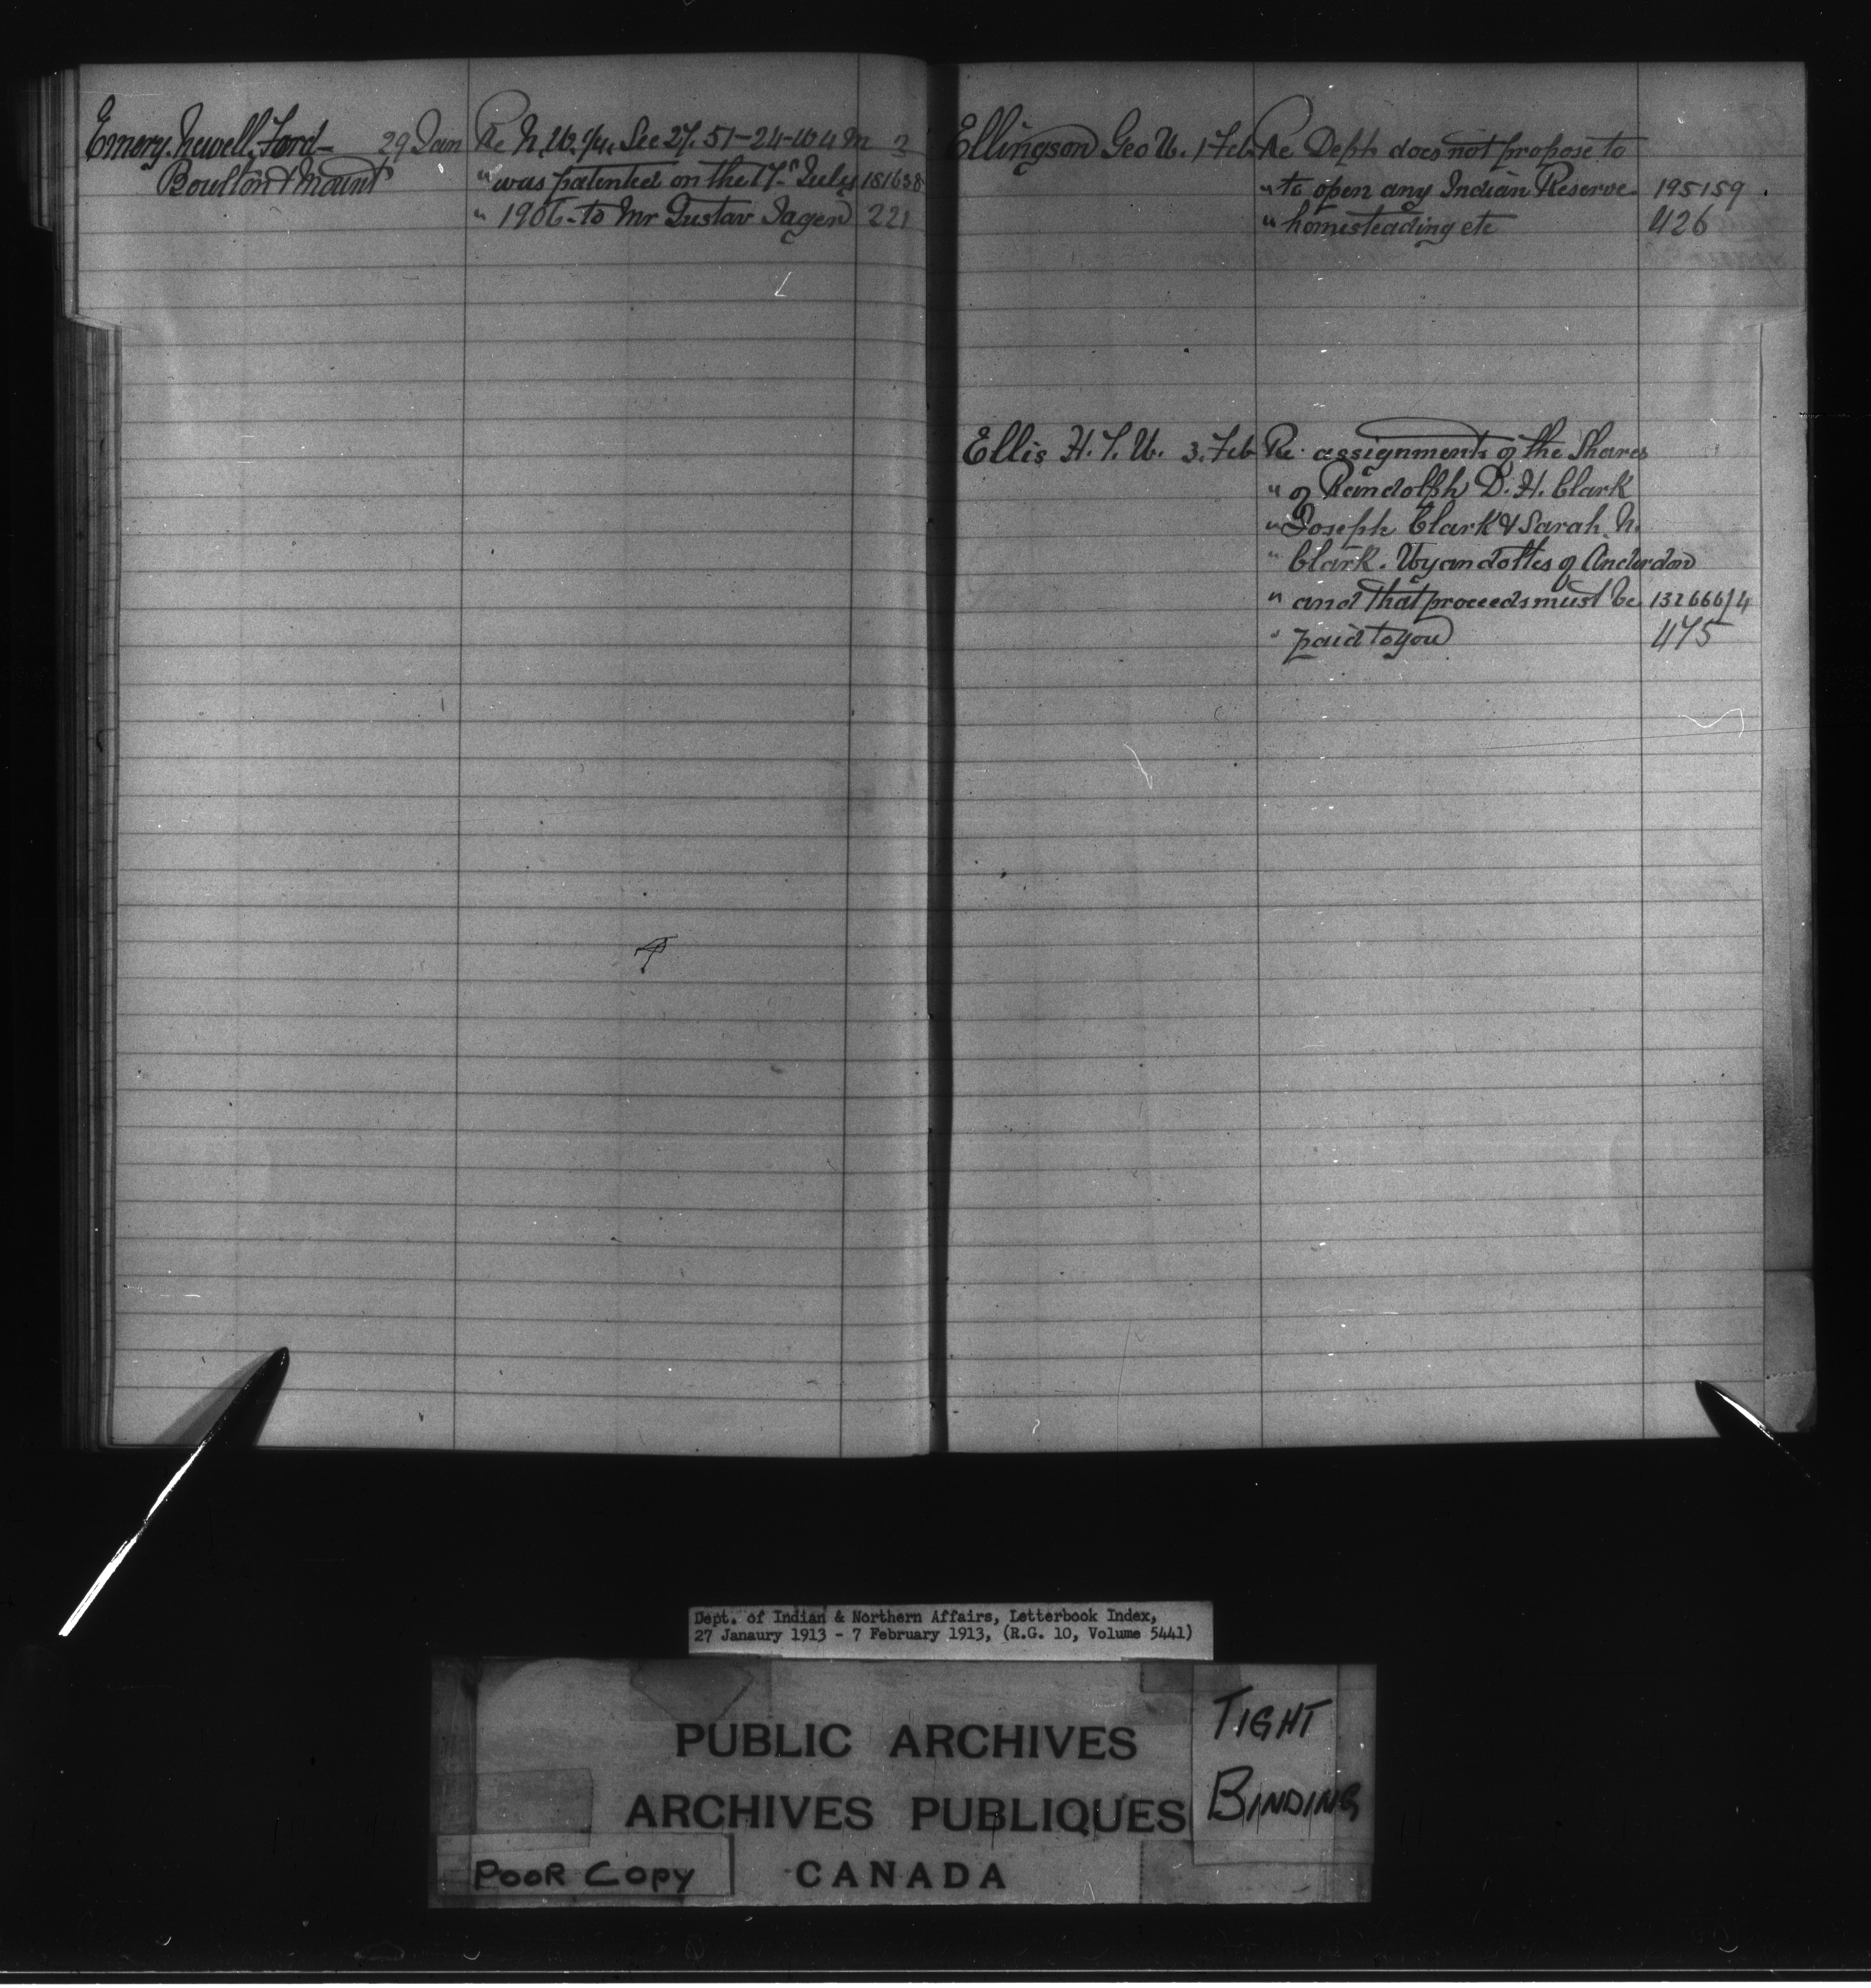 Emery, Newell, Ford- 29 Jan Re N.W. 1/4, Sec 27. 51-24-W4M 3
Boulton & Mount " was patented on the 17th July 181638
" 1906 to Mr Gustav Jagen 221
Ellingson Geo W. 1 Feb Re Dept does not propose to
" to open any Indian Reserve 195159
" homesteading etc 426
Ellis H. T. W. 3. Feb Re assignments of the Shares
" of Randolph D. H. Clark
" Joseph Clark & Sarah N.
" Clark. Wyandottes of Anderdon
" and that proceeds must be 132666/4
" paid to you 475
Dept. of Indian & Northern Affairs, Letterbook Index,
27 Janaury 1913 - 7 February 1913, (R.G. 10, Volume 5441)
PUBLIC ARCHIVES
ARCHIVES PUBLIQUES
CANADA
TIGHT
BINDING
POOR COPY